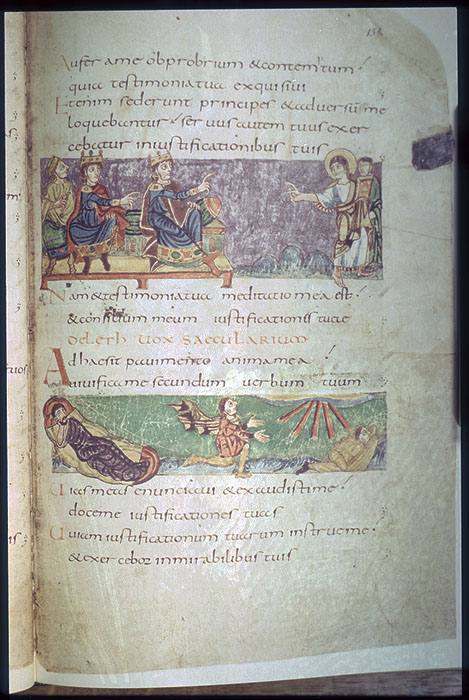 Aufer ame obprobrium & contemtum
quia testimoniatua exquisiui
Etenim sederunt principes &aduersusme
loquebantur seruus autem tuus exer
cebatur iniustificationibus tuis
Nam&testimoniatua meditatio mea est
&consilium meum iustificationis tuae
DELETH UOX SAECULARIUM
Adhaesit pauimento animamea
uiuificame secundum uerbum tuum
Uias meas enunciaui &exaudistime
doceme iustificationes tuas
Uiam iustificationum tuarum instrueme
&exercebor inmirabilibus tuis